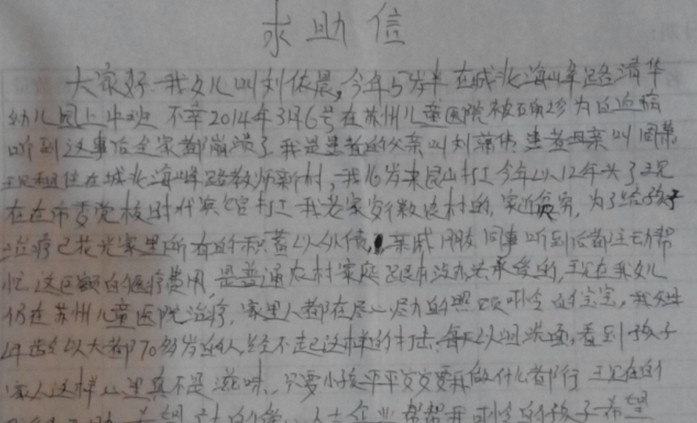 求助信
大家好 我女儿叫刘依晨，今年5岁半 在城北海峰路清华
幼儿园上中班 不幸2014年3月6号在苏州儿童医院被确诊为白血病
听到这事后全家都崩溃了 我是患者的父亲叫刘 患者母亲叫周
现租住在城北海峰路教师新村，我16岁来昆山打工今年以12年头了现
在在市委党校时代宾馆打工 我老家安徽农村的，家近贫穷，为了给孩子
治疗已花光家里所有的积蓄以欠债，亲戚朋友同事听到后都过来帮
忙 这巨额的医疗费用，是普通农村家庭跟本没办法承受的，现在我女儿
仍在苏州儿童医院治疗，家里人都在尽心尽力的照顾可怜的宝宝，我父母
年龄以大都70多岁的人经不起这样的打击，每天以泪洗面，看到孩子
家人这样心里真不是滋味，只要小孩平平安安要我做什么都行 现在的
人士企业 帮帮我可怜的孩子 希望